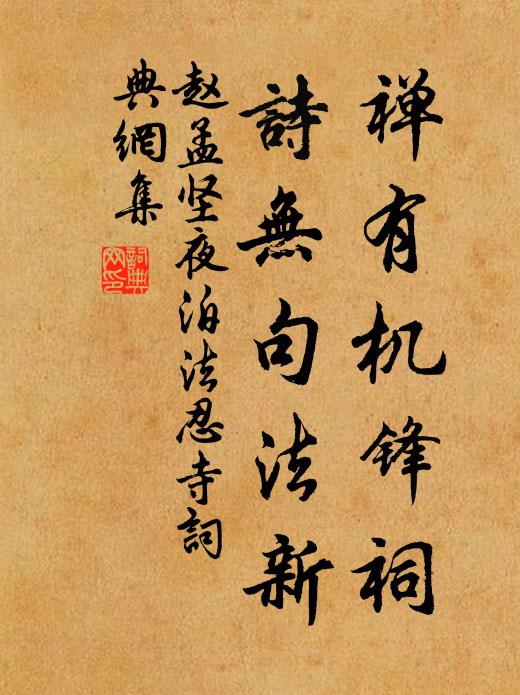 禅有机锋祠
詩無句法新
赵孟坚夜泊法忍寺詞
典網集
詞典
网印